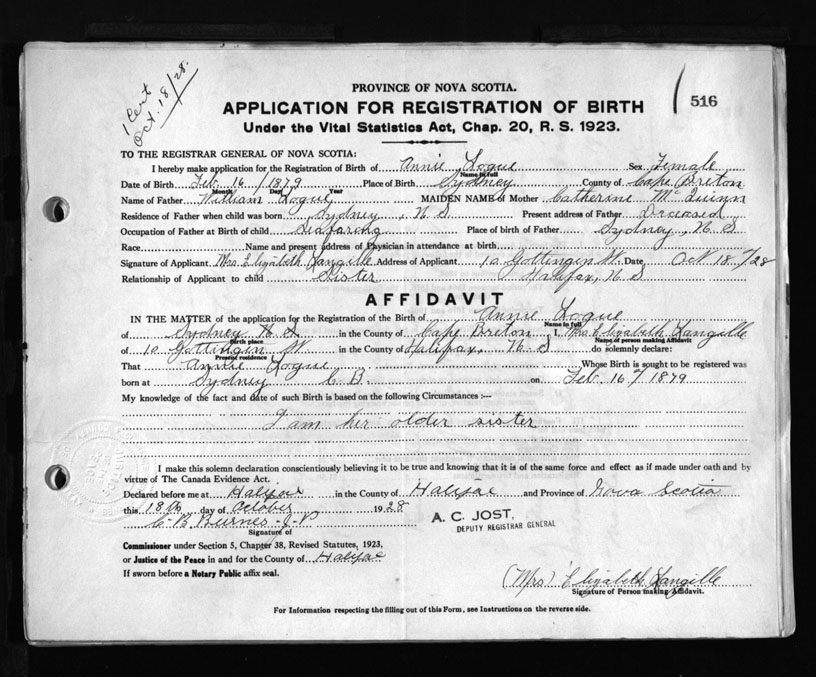 1 Cert
Oct. 18/28.
516
PROVINCE OF NOVA SCOTIA.
APPLICATION FOR REGISTRATION OF BIRTH
Under the Vital Statistics Act, Chap. 20, R. S. 1923.
TO THE REGISTRAR GENERAL OF NOVA SCOTIA:
I hereby make application for the Registration of Birth of Annie Logue Sex Female
Name in full
Date of Birth Feb. 16/1879 Place of Birth Sydney County of Cape Breton
Month Day Year
Name of Father William Logue MAIDEN NAME of Mother Catherine McQuinn
Residence of Father when child was born Sydney, N S Present address of Father Deceased
Occupation of Father at Birth of child Seafaring Place of birth of Father Sydney, N. S
Race Name and present address of Physician in attendance at birth
Signature of Applicant Mrs. Elizabeth Langille Address of Applicant 10 Gottingin St. Date Oct 18/28
Relationship of Applicant to child Sister Halifax, N S
AFFIDAVIT
IN THE MATTER of the application for the Registration of the Birth of Annie Logue
Name in full
of Sydney N S in the County of Cape Breton I, Mrs Elizabeth Langille
Birth place Name of person making Affidavit
of 10 Gottingin St in the County of Halifax, N. S do solemnly declare:
Present residence
That Annie Logue Whose Birth is sought to be registered was
born at Sydney C B. on Feb. 16/1879
My knowledge of the fact and date of such Birth is based on the following Circumstances :—
I am her older sister
I make this solemn declaration conscientiously believing it to be true and knowing that it is of the same force and effect as if made under oath and by
virtue of The Canada Evidence Act.
Declared before me at Halifax in the County of Halifax and Province of Nova Scotia
this 18th day of October 1928
C. B Burnes - J-P
Signature of
A. C. JOST,
DEPUTY REGISTRAR GENERAL
Commissioner under Section 5, Chapter 38, Revised Statutes, 1923,
or Justice of the Peace in and for the County of Halifax
If sworn before a Notary Public affix seal.
(Mrs) Elizabeth Langille
Signature of Person making Affidavit.
For Information respecting the filling out of this Form, see Instructions on the reverse side.